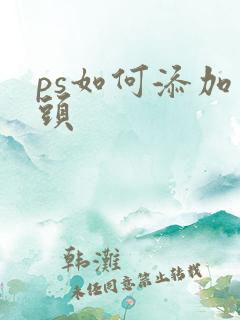 ps如何添加
頭
韩滩
未经同意禁止转载